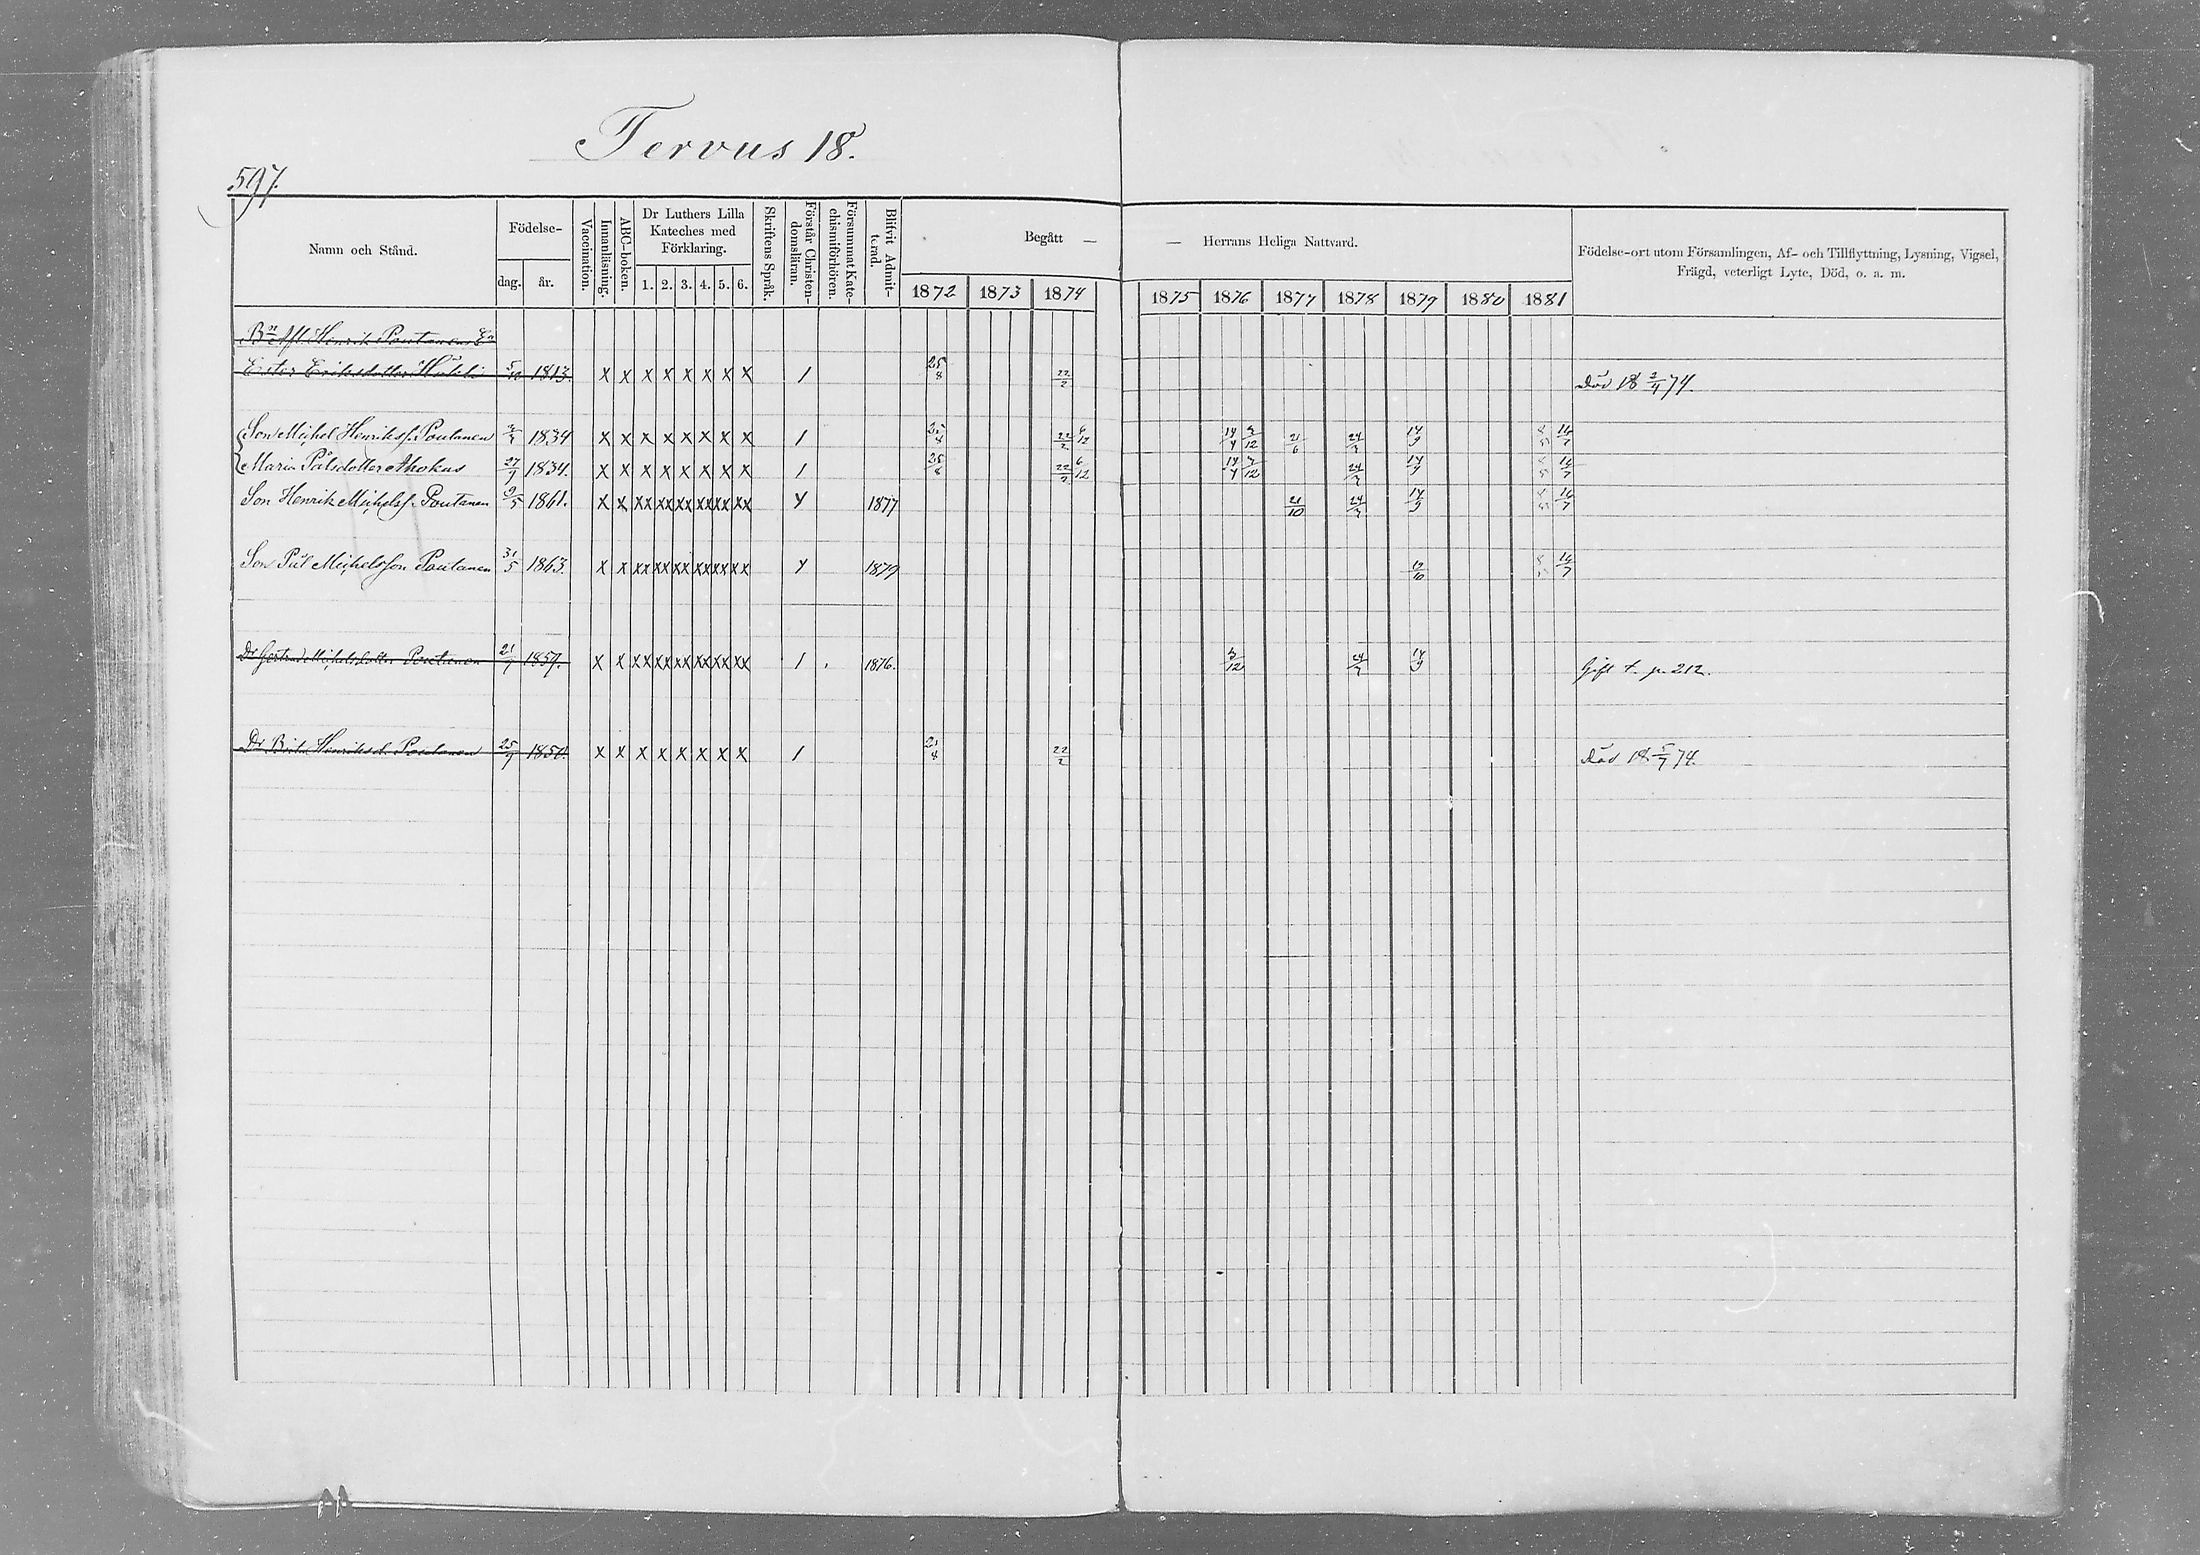 Tervus 18.
597.
Namn och Stånd.
Födelse-
dag.
år.
Vaccination.
Innanläsning.
ABC-boken.
Dr Luthers Lilla
Kateches med
Förklaring.
1. 2. 3. 4. 5. 6.
Skriftens Språk.
Förstår Christen-
domsläran.
Försummat Kate-
chismiförhören.
Blifvit Admit-
terad.
Begått —
— Herrans Heliga Nattvard.
1872 1873 1874 1875 1876 1877 1878 1879 1880 1881
Födelse-ort utom Församlingen, Af- och Tillflyttning, Lysning, Vigsel,
Frägd, veterligt Lyte, Död, o. a. m.
Afl Henrik Poutanens
Eriksdotter 5/10 1813. x x x x x x x x 1 25/8 22/2 Död 18 2/4 74.
Son Michel Henrikss. Poutanen 1834 x x x x x x x x 1 25/8 22/2 6/12 14/4 3/12 21/6 24/3 14/9 16/7
Maria Pålsdotter Ahokas 27/9 1834. x x x x x x x x 1 25/8 22/2 6/12 14/4 3/12 24/3 14/9 16/7
Son Henrik Michelss. Poutanen 9/5 1861. x x xx xx xx xx xx xx Y 1877 21/10 24/3 14/9 16/7
Son Pål Michelsson Poutanen 31/5 1863. x x xx xx xx xx xx xx Y 1879 16/7
Dr Michelsdotter Poutanen 21/9 1859. x x xx xx xx xx xx xx 1 1876. 3/12 24/3 14/9 Gift t. p. 212.
Dr Henriksd. Poutanen 25/9 x x x x x x x x 1 22/2 Död 18 5/7 74.